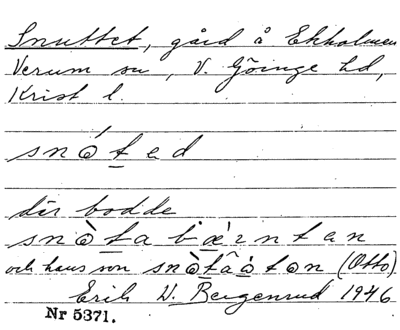 Snuttet, gård å Ekholmen
Verum sn, V. Göinge hd,
Krist l.
snóted
där bodde
snòta bærntan
och hans son snòtåóton (Otto)
Erik W. Bergenrud 1946
Nr 5371.